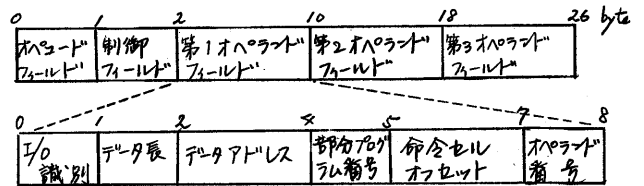 0 1 2 10 18 26 byte
オペコード フィールド
制御 フィールド
第1オペランド フィールド
第2オペランド フィールド
第3オペランド フィールド
0 1 2 4 5 7 8
I/O 識別
データ長
データアドレス
部分プログラム番号
命令セル オフセット
オペランド 番号